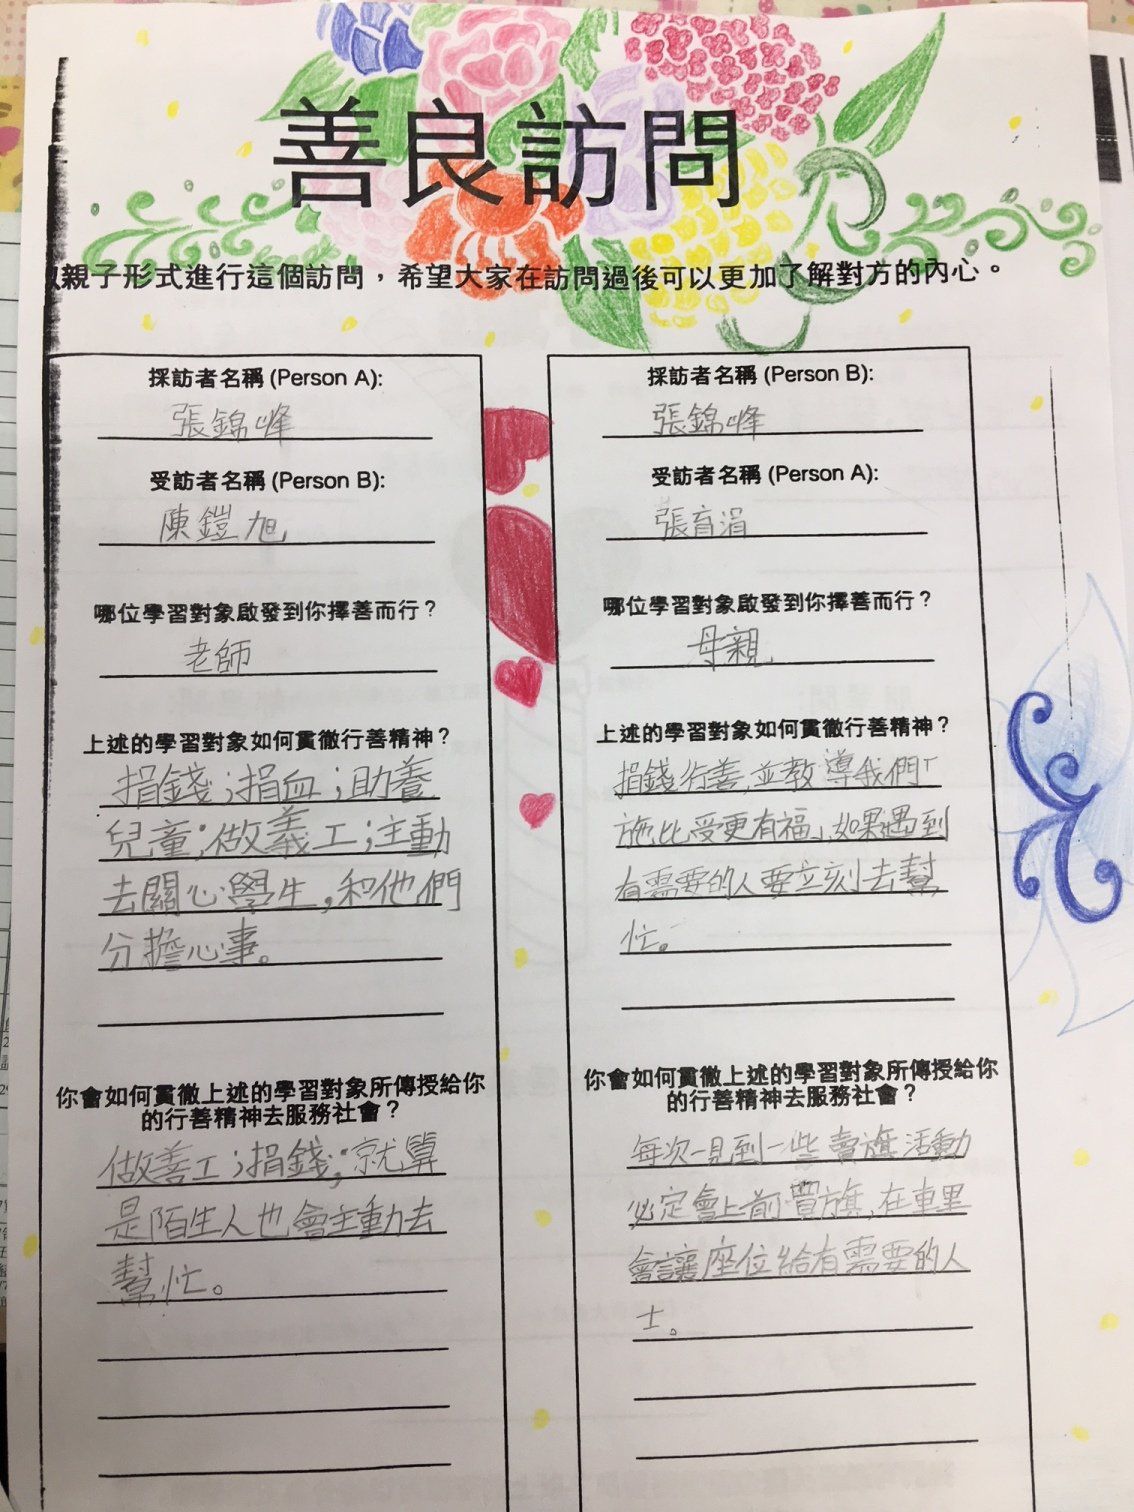 善良訪問
親子形式進行這個訪問，希望大家在訪問過後可以更加了解對方的內心。
採訪者名稱 (Person A):
張錦峰
受訪者名稱 (Person B):
陳鎧旭
哪位學習對象啟發到你擇善而行？
老師
上述的學習對象如何貫徹行善精神？
捐錢；捐血；助養
兒童；做義工；主動
去關心學生，和他們
分擔心事。
你會如何貫徹上述的學習對象所傳授給你
的行善精神去服務社會？
做善工；捐錢；就算
是陌生人也會主動去
幫忙。
採訪者名稱 (Person B):
張錦峰
受訪者名稱 (Person A):
張育涓
哪位學習對象啟發到你擇善而行？
母親
上述的學習對象如何貫徹行善精神？
捐錢行善，並教導我們「
施比受更有福」，如果遇到
有需要的人要立刻去幫
忙。
你會如何貫徹上述的學習對象所傳授給你
的行善精神去服務社會？
每次見到一些賣旗活動
必定會上前買旗，在車里
會讓座位給有需要的人
士。